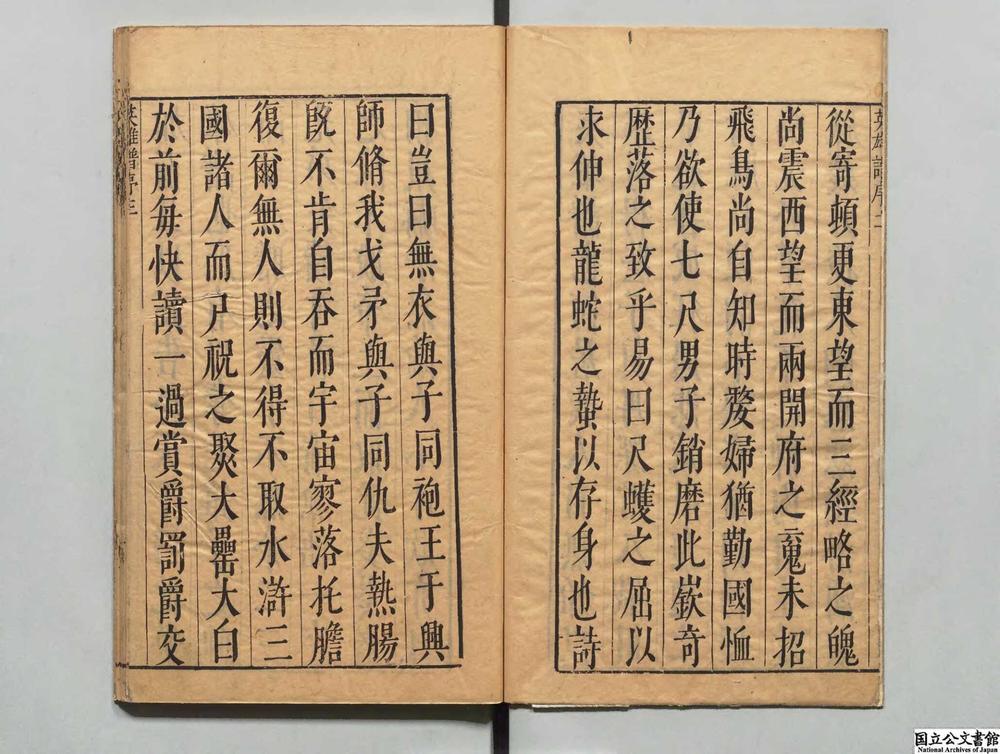 從寄頓更東望而三經略之魄
尚震西望而兩開府之䰟未招
飛鳥尚自知時嫠婦猶勤國恤
乃欲使七尺男子銷磨此嶔奇
歷落之致乎易曰尺蠖之屈以
求伸也龍蛇之蟄以存身也詩
曰豈曰無衣與子同袍王于興
師脩我戈矛與子同仇夫熱腸
旣不肯自吞而宇宙寥落托膽
復爾無人則不得不取水滸三
國諸人而尸祝之聚大罍大白
於前每快讀一過賞爵罰爵交
英雄譜序二
英雄譜序三
国立公文書館
National Archives of Japan